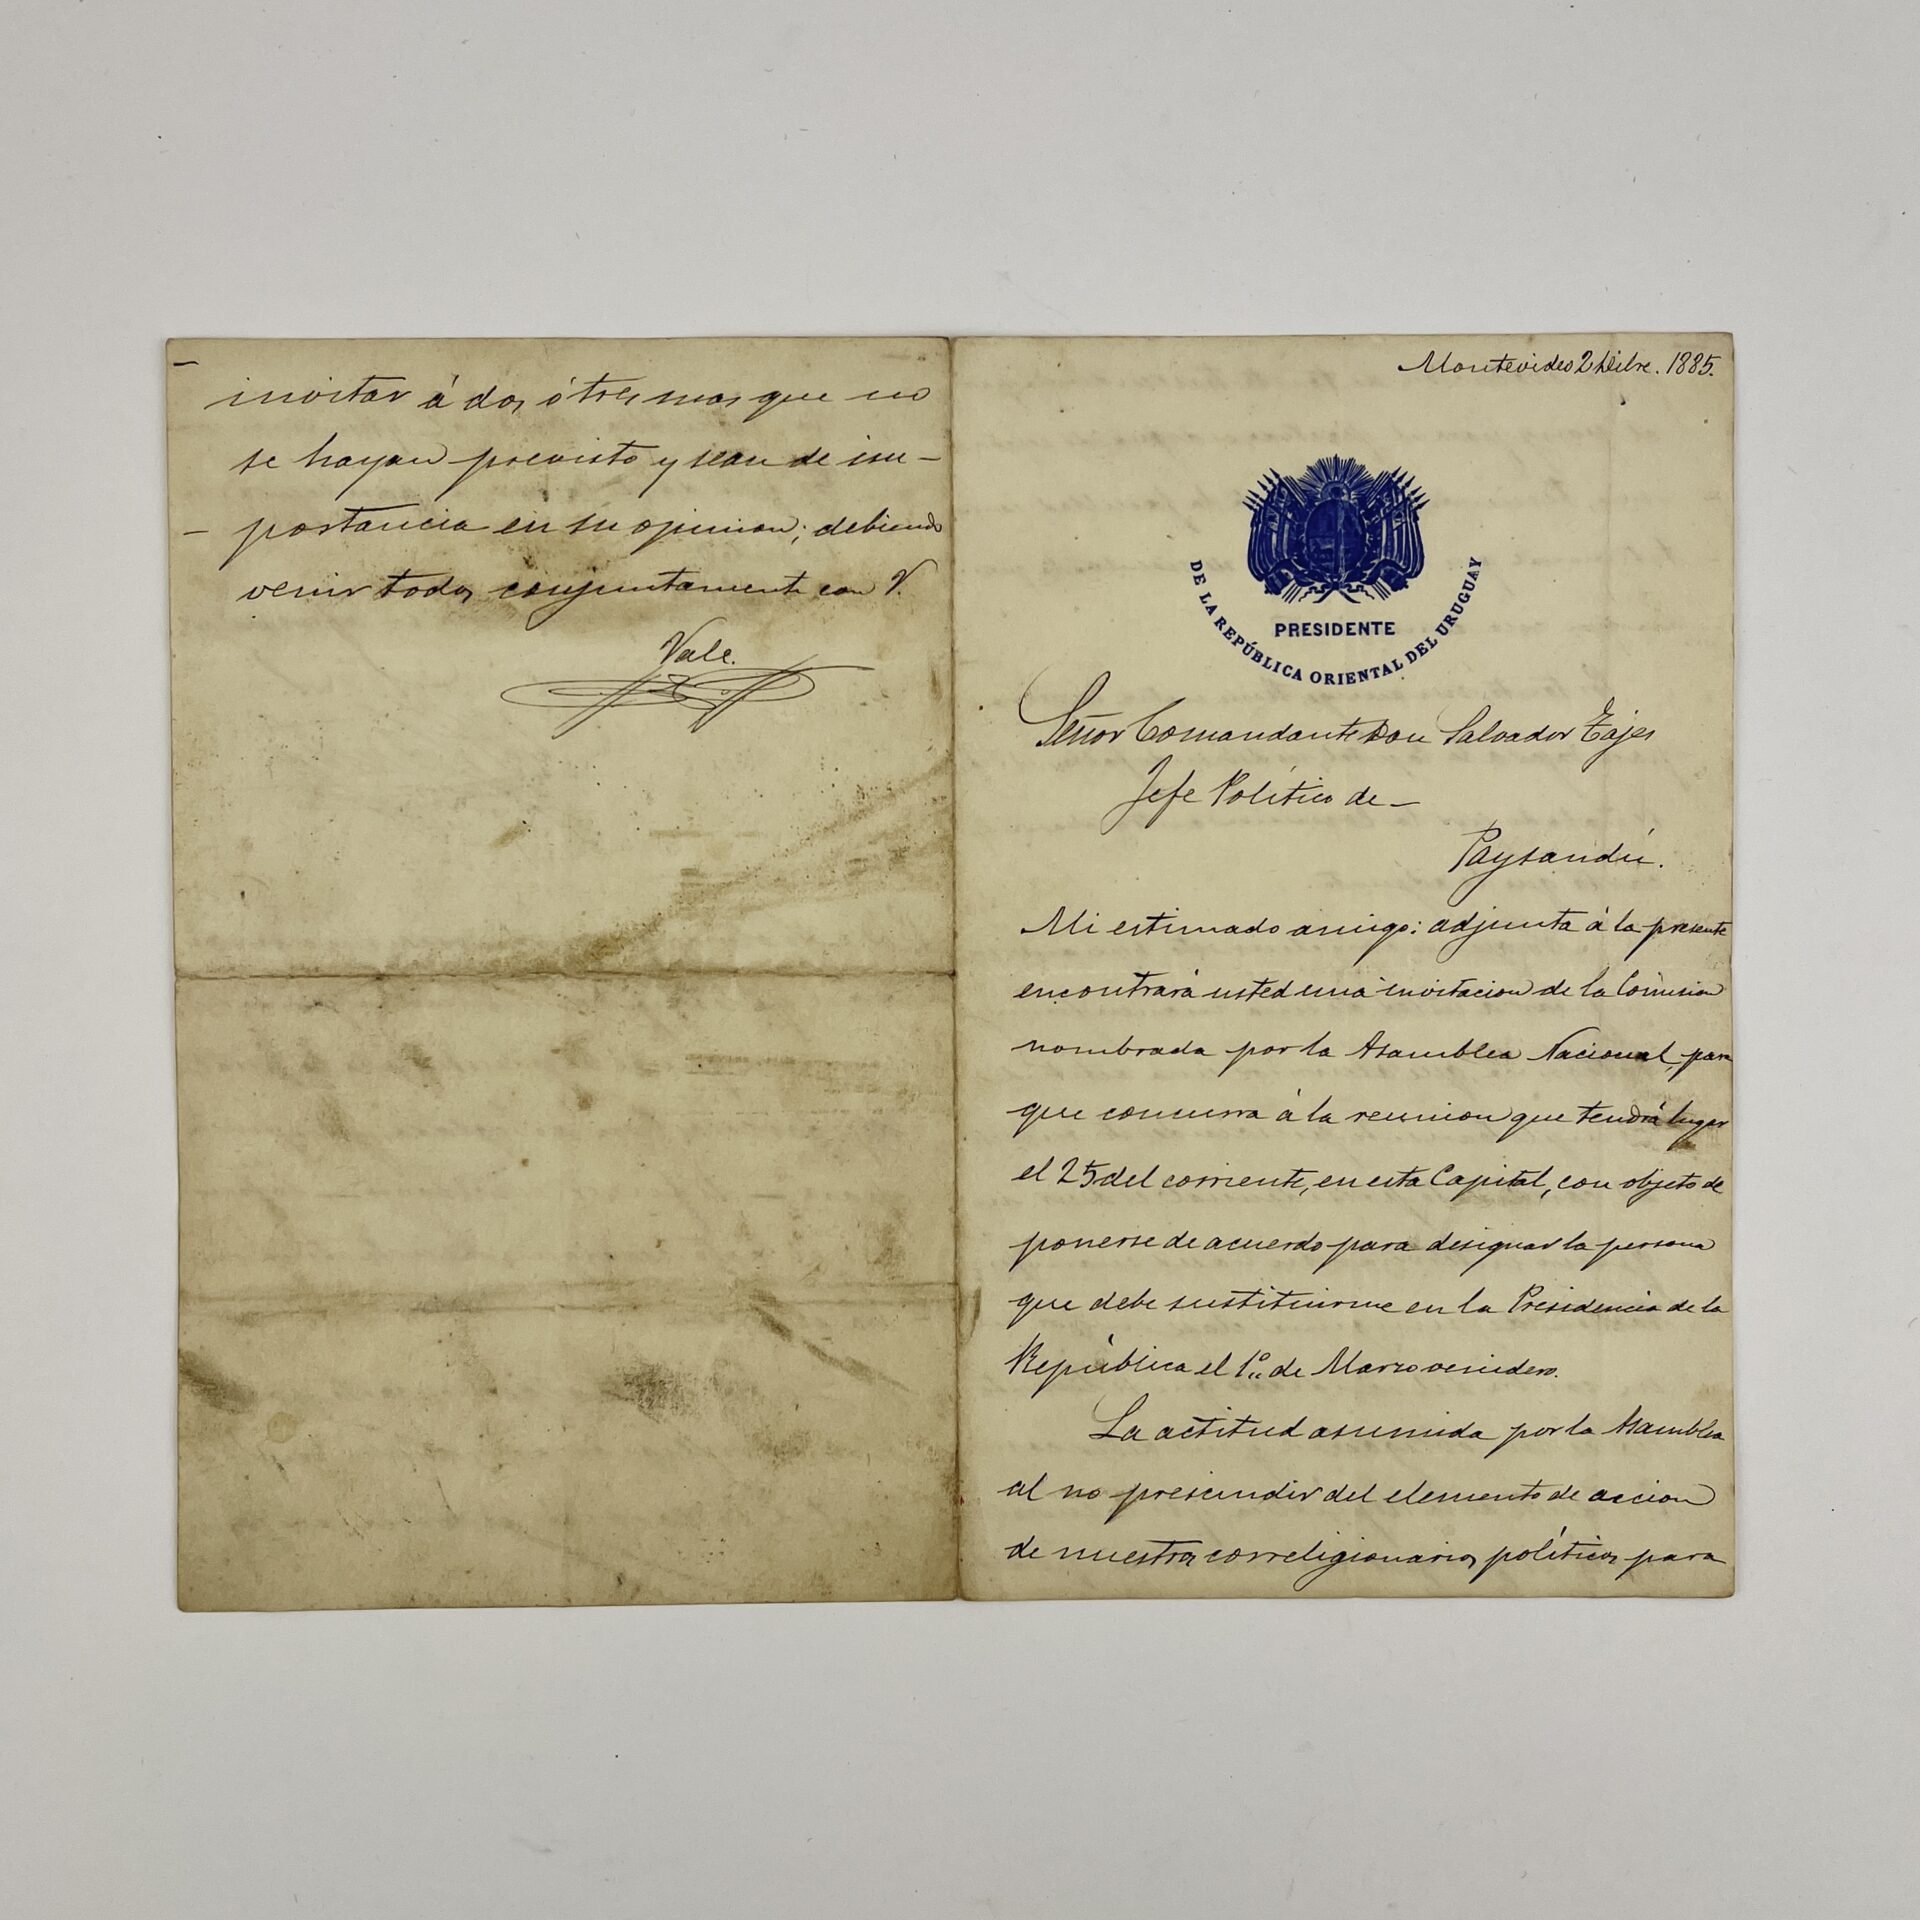 Montevideo 2 Dibre. 1885.
PRESIDENTE
DE LA REPÚBLICA ORIENTAL DEL URUGUAY
Señor Comandante Don Salvador Tajes
Jefe Político de –
Paysandú.
Mi estimado amigo: adjunta á la presente
encontrará usted una invitacion de la Comision
nombrada por la Asamblea Nacional, para
que concurra á la reunion que tendrá lugar
el 25 del corriente, en esta Capital, con objeto de
ponerse de acuerdo para designar la persona
que debe sustituirme en la Presidencia de la
República el 1º de Marzo venidero.
La actitud asumida por la Asamblea
al no prescindir del elemento de accion
de nuestros correligionarios políticos para
invitar á dos ó tres mas que no
se hayan previsto y sean de im–
– portancia en su opinion; debiendo
venir todos conjuntamente con V.
Vale.